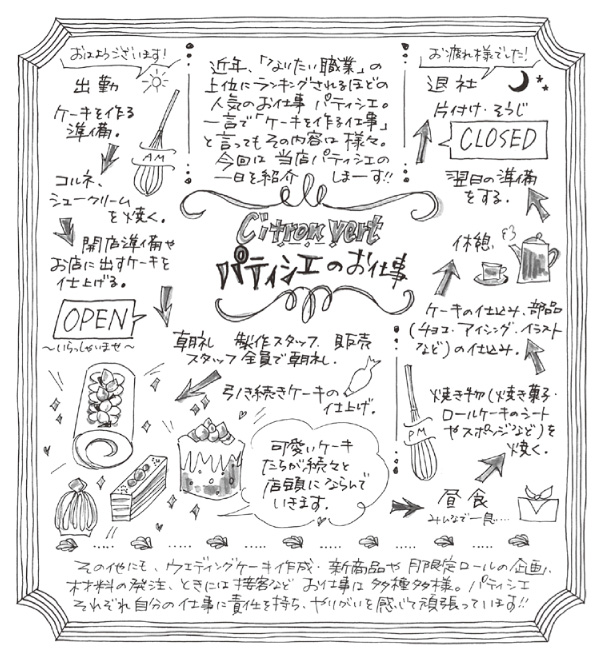 おはようございます!
出勤
ケーキを作る
準備。
AM
コルネ、
シュークリーム
を焼く。
開店準備や
お店に出すケーキを
仕上げる。
OPEN
～いらっしゃいませ～
近年、「なりたい職業」の
上位にランキングされるほどの
人気のお仕事 パティシエ。
一言で「ケーキを作る仕事」
と言ってもその内容は様々。
今回は 当店パティシエの
一日を紹介 しまーす!!
Citron vert
パティシエのお仕事
朝礼 製作スタッフ、販売
スタッフ全員で朝礼.
引き続きケーキの
仕上げ。
可愛いケーキ
たちが続々と
店頭にならんで
いきます。
昼食
みんなで一息....
焼き物(焼き菓子・
ロールケーキのシート
やスポンジなど)を
焼く。
PM
ケーキの仕込み、部品
(チョコ・アイシング・イラスト
など)の仕込み。
休憩
翌日の準備
をする。
CLOSED
片付け・そうじ
退社
お疲れ様でした!
その他にも、ウエディングケーキ作成・新商品や月限定ロールの企画、
材料の発注、ときには接客など お仕事は多種多様。パティシエ
それぞれ自分の仕事に責任を持ち、やりがいを感じて頑張っています!!